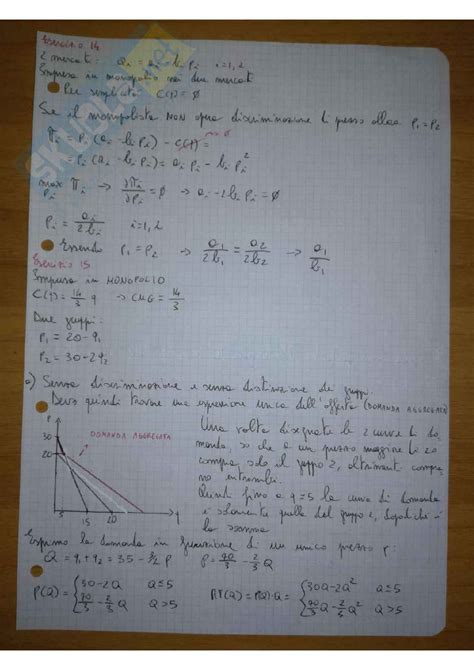 Esercizio 14
2 mercati: qi = ai - bi Pi i=1,2
Impresa in monopolio nei due mercati
Per semplicità C(q) = Ø
Se il monopolista NON opera discriminazione di prezzo allora P1 = P2
πi = Pi (ai - bi Pi) - C(q) = Ø
= Pi (ai - bi Pi) = ai Pi - bi Pi²
max πi → ∂πi/∂Pi = Ø → ai - 2bi Pi = Ø
Pi
Pi = ai/2bi i=1,2
Essendo P1 = P2 → a1/2b1 = a2/2b2 → a1/b1
Esercizio 15
Impresa in MONOPOLIO
C(q) = 14/3 q → CMG = 14/3
Due gruppi:
P1 = 20 - q1
P2 = 30 - 2q2
a) Senza discriminazione e senza distinzione dei gruppi.
Devo quindi trovare una espressione unica dell'offerta (DOMANDA AGGREGATA)
30
20
DOMANDA AGGREGATA
5 15 20 q
Una volta disegnate le 2 curve di do-
manda, so che a un prezzo maggiore di 20
compra solo il gruppo 2, altrimenti compra-
no entrambi.
Quindi fino a q=5 la curva di domanda
è solamente quella del gruppo 2, dopodiché è
la somma
Esprimo la domanda in funzione di un unico prezzo P:
Q = q1 + q2 = 35 - 3/2 P P = 70/3 - 2/3 Q
P(Q) = { 30 - 2Q Q ≤ 5 RT(Q) = P(Q)·Q = { 30Q - 2Q² Q ≤ 5
70/3 - 2/3 Q Q > 5 70/3 Q - 2/3 Q² Q > 5